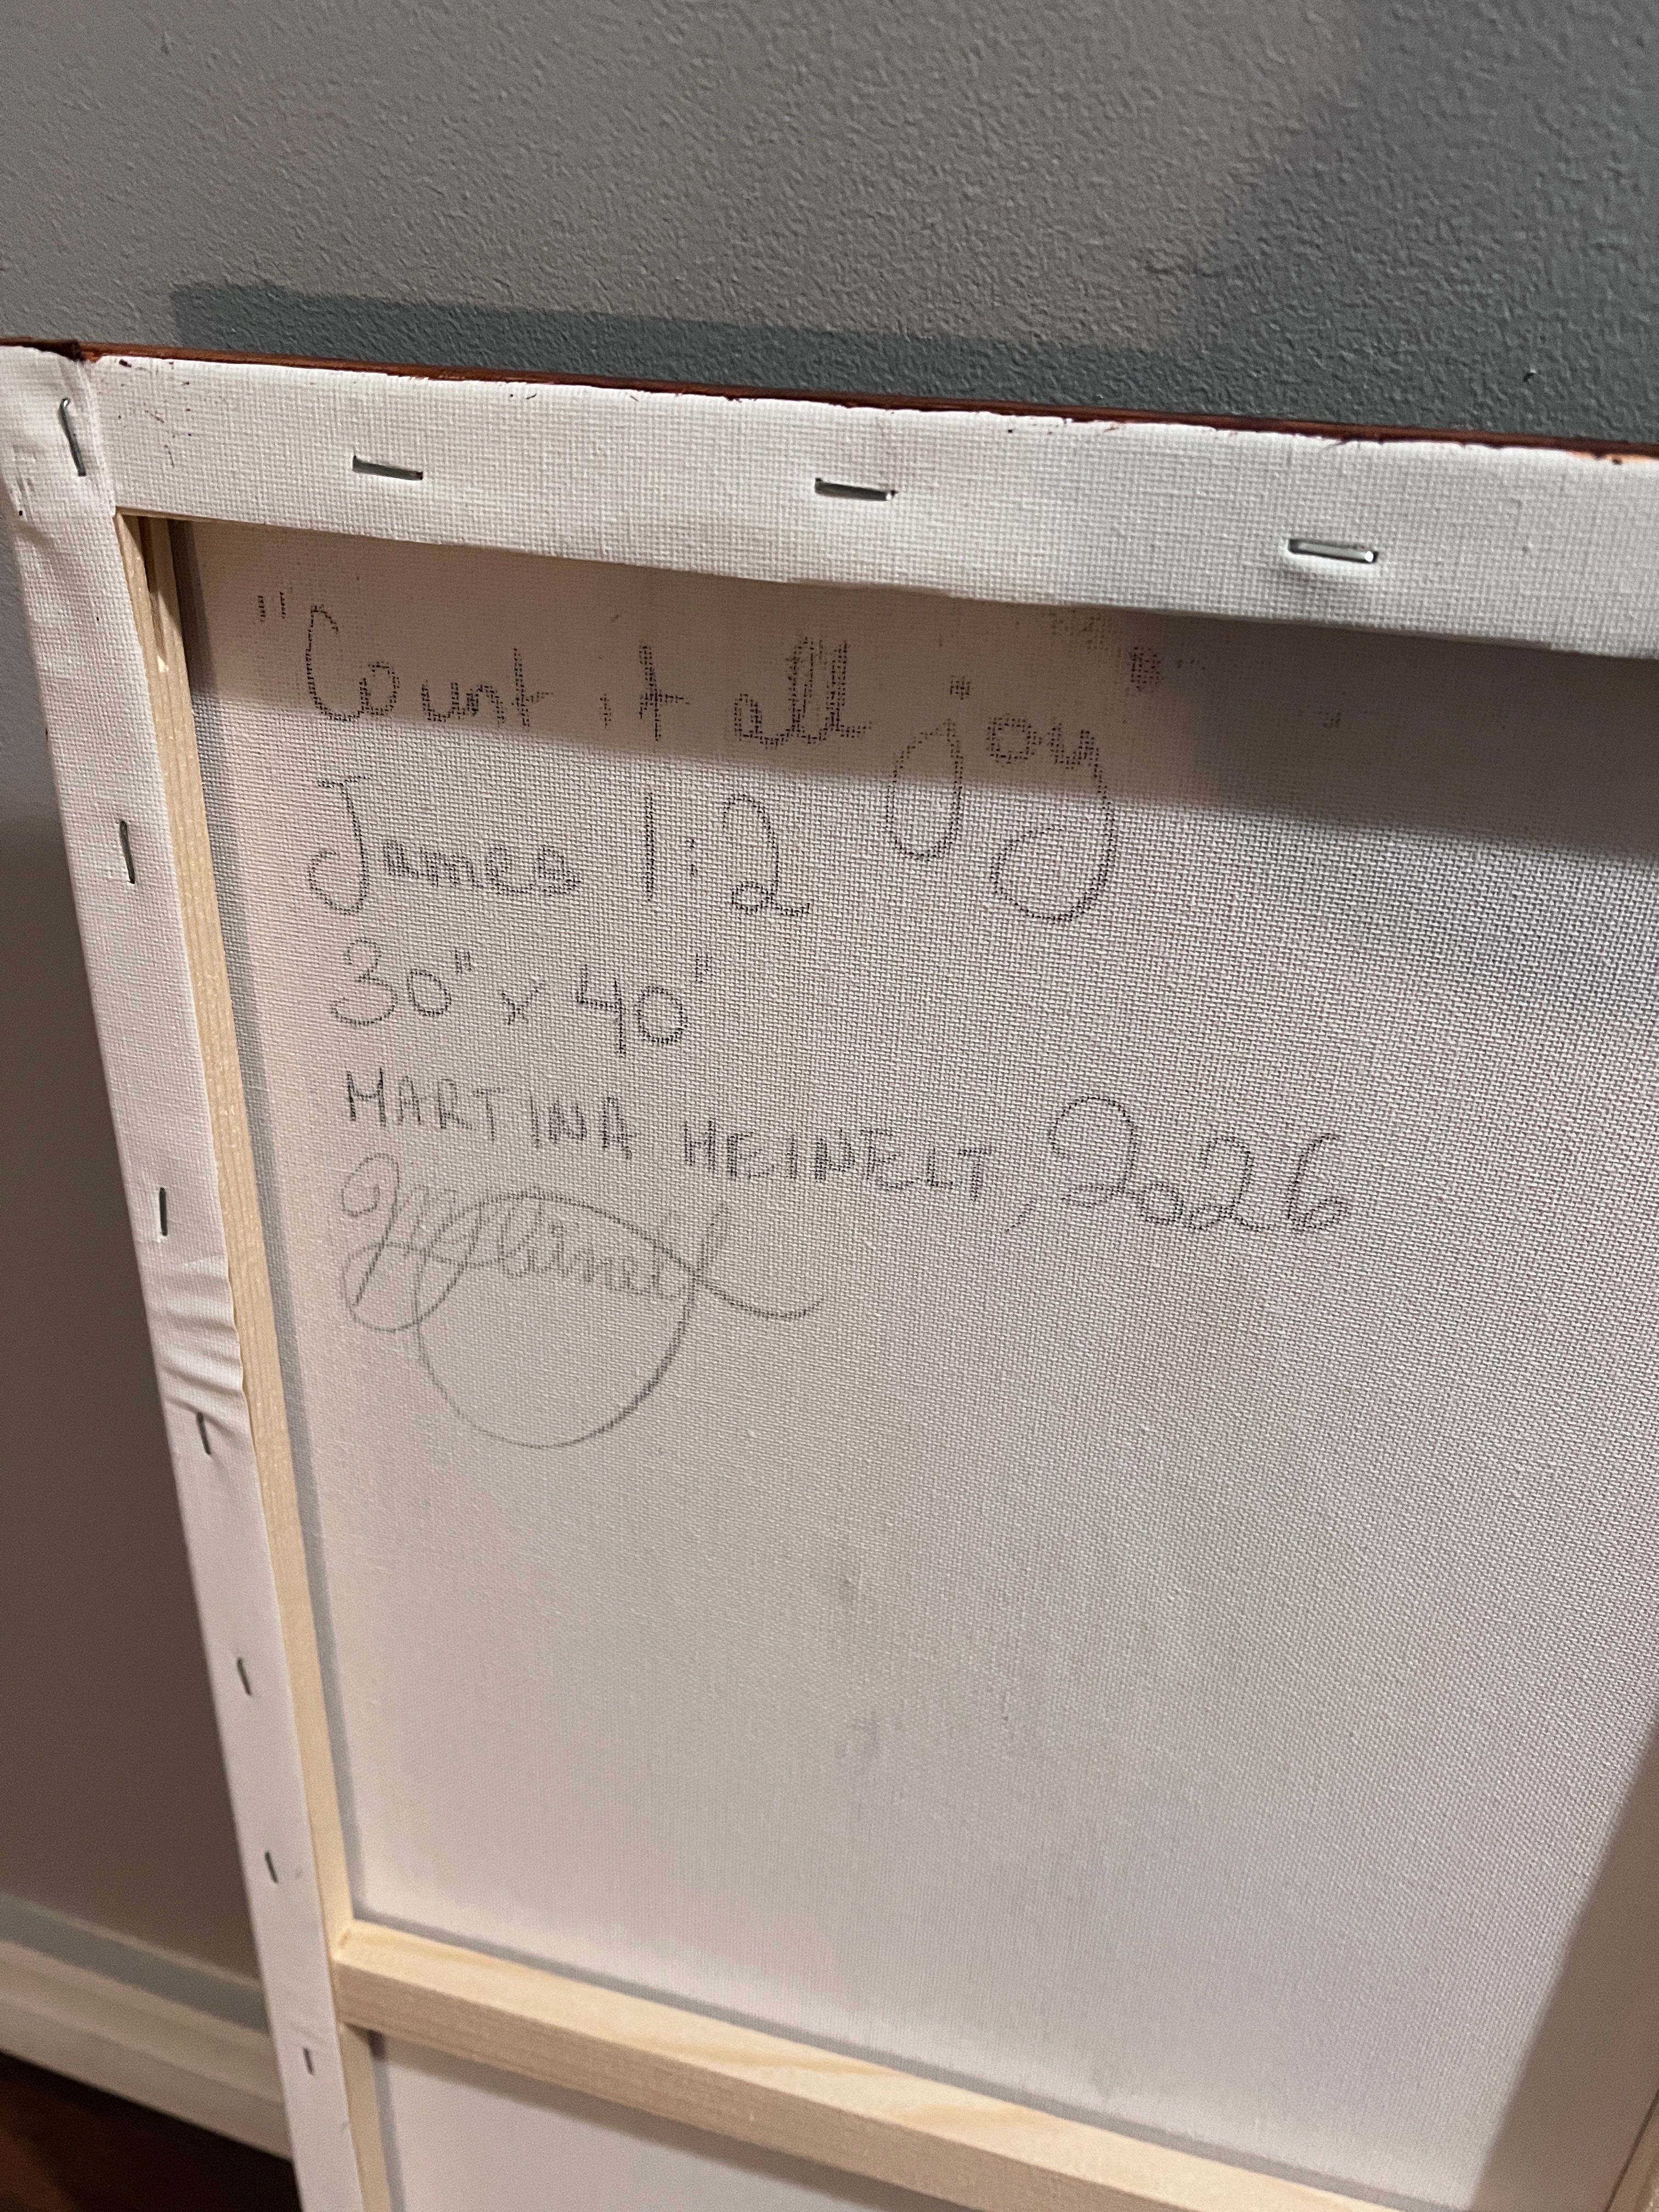 "Count it all joy"
James 1:2
30" x 40"
MARTINA HEINELT, 2026
MHeinelt